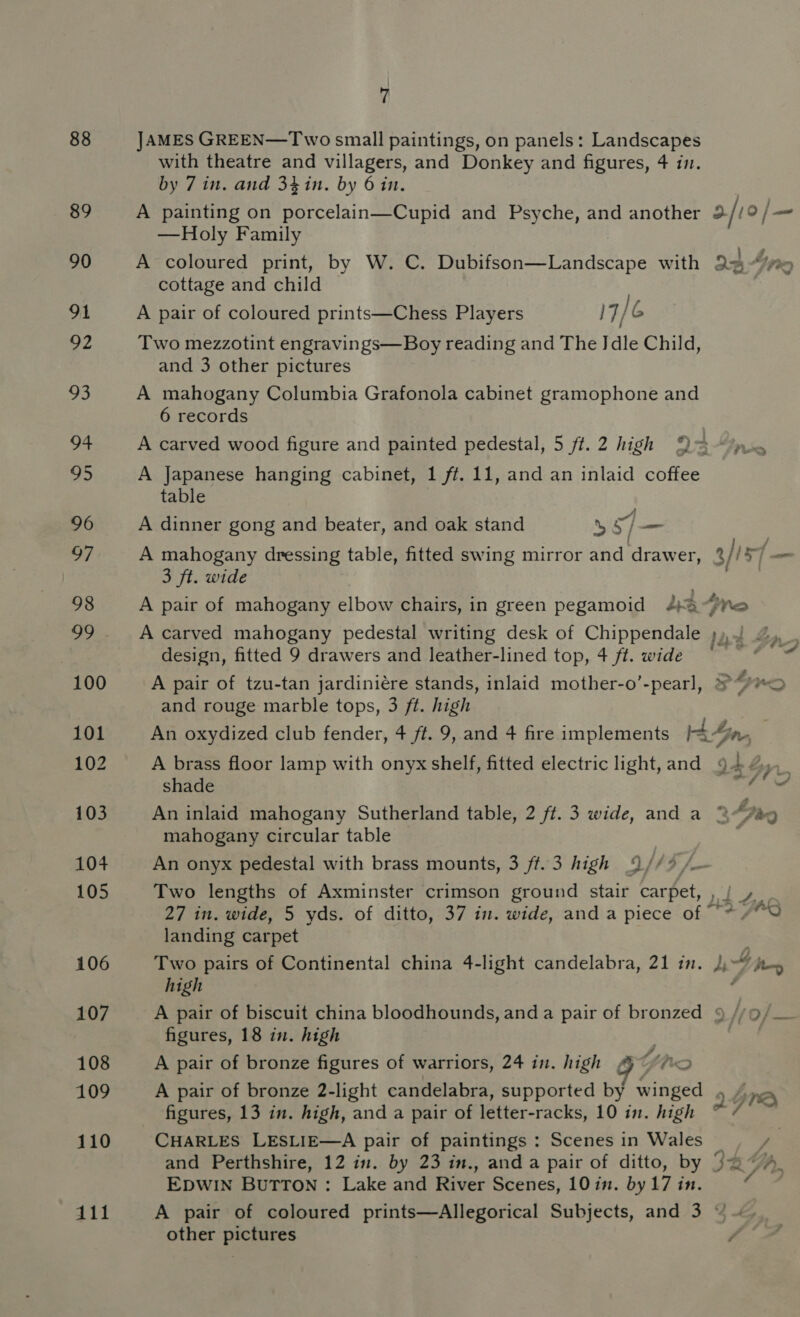 7
88 JAMES GREEN—Two small paintings, on panels: Landscapes
with theatre and villagers, and Donkey and figures, 4 in.
by 7 in. and 3½ in. by 6 in.
89 A painting on porcelain—Cupid and Psyche, and another 2/10/—
—Holy Family
90 A coloured print, by W. C. Dubifson—Landscape with
cottage and child
91 A pair of coloured prints—Chess Players 17/6
92 Two mezzotint engravings—Boy reading and The Idle Child,
and 3 other pictures
93 A mahogany Columbia Grafonola cabinet gramophone and
6 records
94 A carved wood figure and painted pedestal, 5 ft. 2 high
95 A Japanese hanging cabinet, 1 ft. 11, and an inlaid coffee
table
96 A dinner gong and beater, and oak stand
97 A mahogany dressing table, fitted swing mirror and drawer,
3 ft. wide
98 A pair of mahogany elbow chairs, in green pegamoid
99 A carved mahogany pedestal writing desk of Chippendale
design, fitted 9 drawers and leather-lined top, 4 ft. wide
100 A pair of tzu-tan jardiniére stands, inlaid mother-o'-pearl,
and rouge marble tops, 3 ft. high
101 An oxydized club fender, 4 ft. 9, and 4 fire implements
102 A brass floor lamp with onyx shelf, fitted electric light, and
shade
103 An inlaid mahogany Sutherland table, 2 ft. 3 wide, and a
mahogany circular table
104 An onyx pedestal with brass mounts, 3 ft. 3 high
105 Two lengths of Axminster crimson ground stair carpet,
27 in. wide, 5 yds. of ditto, 37 in. wide, and a piece of
landing carpet
106 Two pairs of Continental china 4-light candelabra, 21 in.
high
107 A pair of biscuit china bloodhounds, and a pair of bronzed
figures, 18 in. high
108 A pair of bronze figures of warriors, 24 in. high
109 A pair of bronze 2-light candelabra, supported by winged
figures, 13 in. high, and a pair of letter-racks, 10 in. high
110 CHARLES LESLIE—A pair of paintings : Scenes in Wales
and Perthshire, 12 in. by 23 in., and a pair of ditto, by
EDWIN BUTTON : Lake and River Scenes, 10 in. by 17 in.
111 A pair of coloured prints—Allegorical Subjects, and 3
other pictures